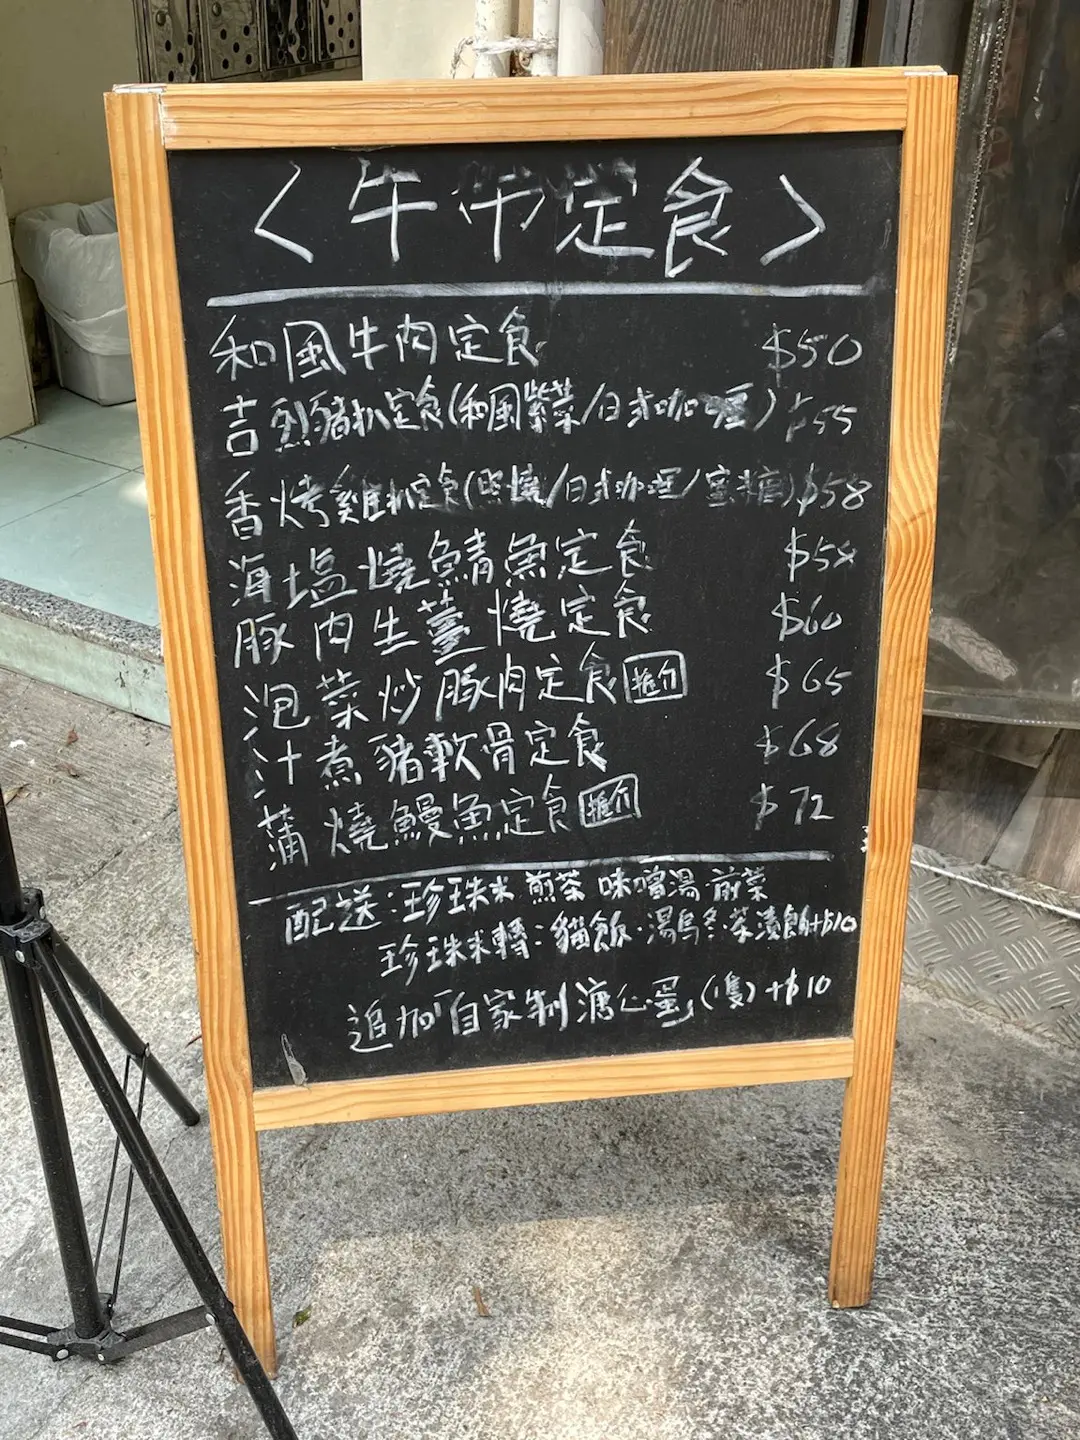 〈牛午定食〉
和風牛肉定食 $50
吉烈豬扒定食(和風紫菜/日式咖喱) $55
香烤雞扒定食(照燒/日式咖喱/蜜糖) $58
海塩燒鯖魚定食 $58
豚肉生薑燒定食 $60
泡菜炒豚肉定食 推介 $65
汁煮豬軟骨定食 $68
蒲燒鰻魚定食 推介 $72
配送:珍珠米 煎茶 味噌湯 前菜
珍珠米轉:貓飯·湯烏冬·茶漬飯+$10
追加「自家制溏心蛋(1隻)+$10